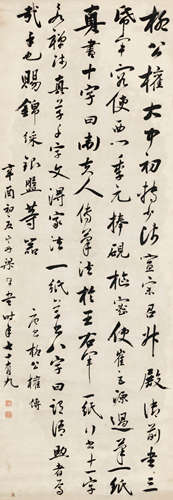 柳公權大中初轉少師宣宗召升殿御前書三
紙軍容使西門季元捧硯樞密使崔巨源過筆一紙
真書十字曰衛夫人傳筆法於王右軍一紙行書十一字
曰永禪師真草千字文得家法一紙草書八字曰謂語助者焉
哉乎也賜錦綵銀盤等器 唐書柳公權傳
辛酉初夏山舟梁同書時年七十有九